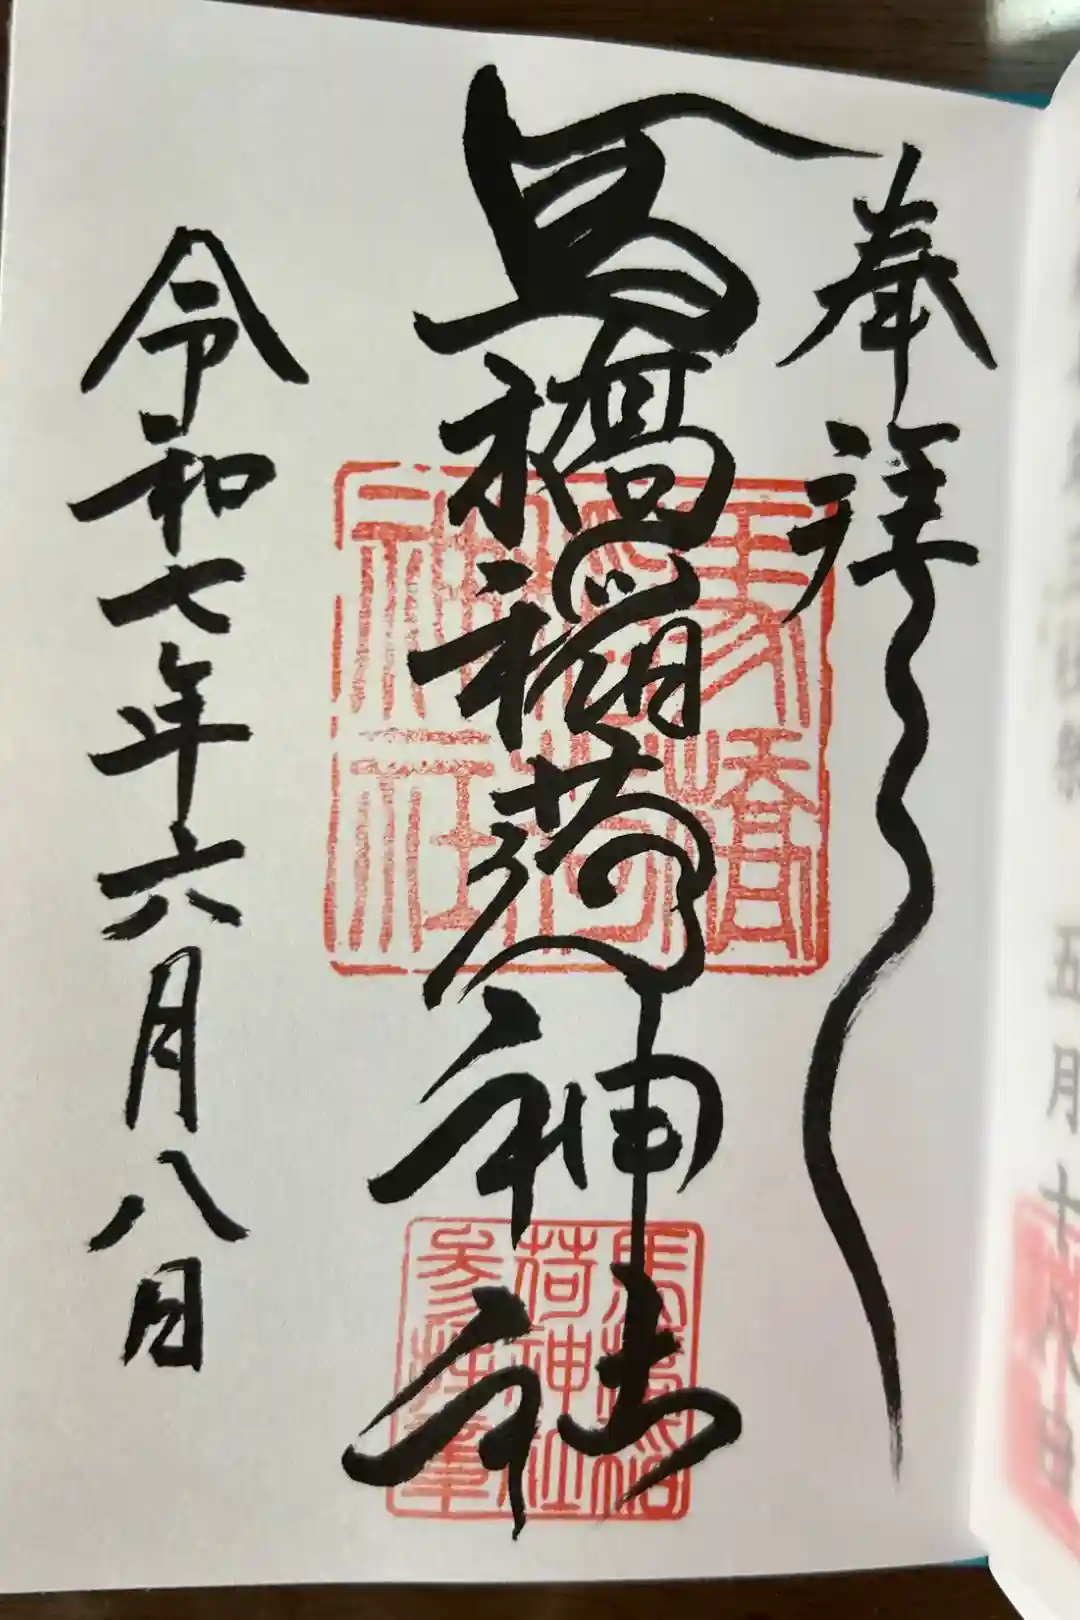 奉拝
馬橋稲荷神社
令和七年六月八日
馬橋
稲荷
神社
馬橋稲
荷神社
参拝章
五月十八日